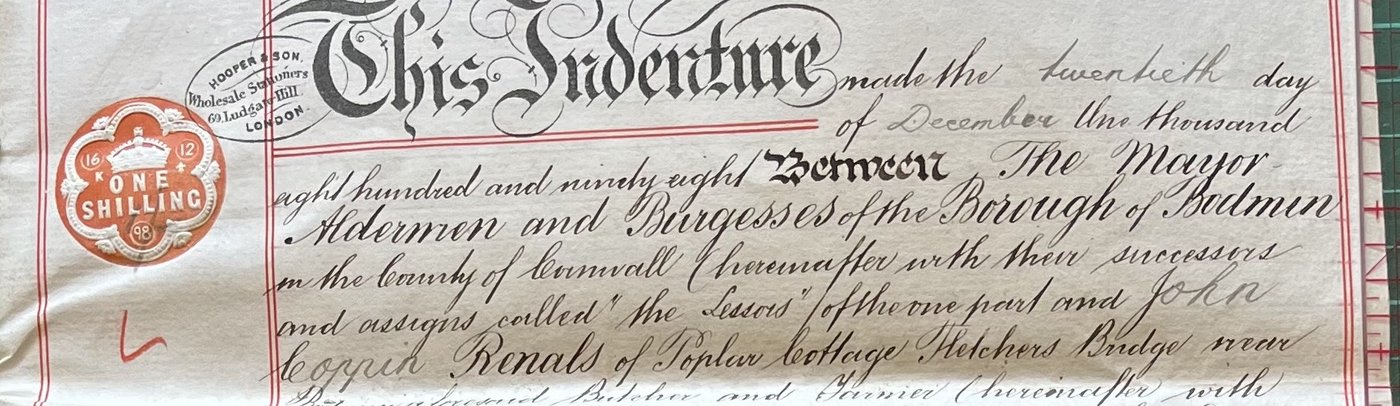 HOOPER & SON,
Wholesale Stationers
69, Ludgate Hill
LONDON.
16 12
K
ONE
SHILLING
98
This Indenture made the twentieth day
of December One thousand
eight hundred and ninety eight Between The Mayor
Aldermen and Burgesses of the Borough of Bodmin
in the County of Cornwall (hereinafter with their successors
and assigns called "the Lessors") of the one part and John
Coppin Renals of Poplar Cottage Fletchers Bridge near
Butcher and Farmer (hereinafter with